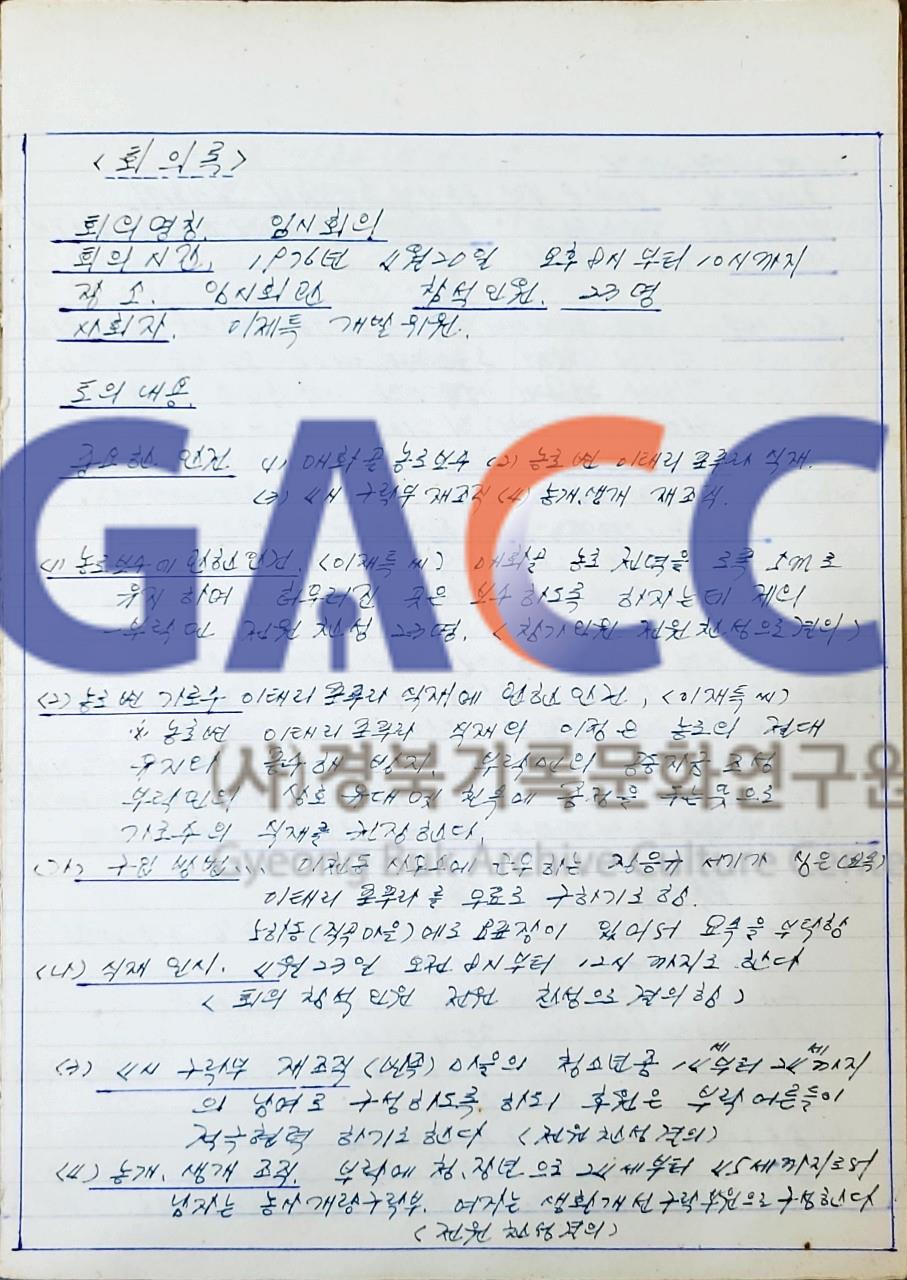 <회의록>
회의명칭. 임시회의
회의시간. 1976년 4월20일 오후8시부터 10시까지
장소. 임시회관 참석인원. 23명
사회자. 이제득 개발위원.
토의 내용.
중요한 안건 (1) 매화골 농로보수 (2) 농로변 이태리포푸라 식재.
(3) 4H 구락부 재조직 (4) 농개.생개 재조직.
(1) 농로보수에 관한 안건. <이재득씨> 매화골 농로 전역을 로폭 으로
유지하며 허무러진 곳은 보수하도록 하자는데 제의
부락민 전원 찬성 23명. <참가인원 전원 찬성으로 결의>
(2) 농로변 가로수 이태리포푸라 식재에 관한 안건, <이재득씨>
※ 농로변 이태리포푸라 식재의 이점은 농로의 절대
유지와 풍수해 방지. 부락민의 공동자금 조성
부락민의 상호 유대 및 친목에 공정을 두는 뜻으로
가로수의 식재를 권장한다.
(가) 구입 방법... 사무소에 근무하는 서기가 심은(묘목)
이태리포푸라를 무료로 구하기로 함.
노하동(적곡마을)에도 묘표장이 있어서 묘목을 부탁함
(나) 식재 일시. 4월23일 오전 8시부터 12시까지로 한다
<회의 참석 인원 전원 찬성으로 결의함>
(3) 4H 구락부 재조직 마을의 청소년중 14세부터 24세까지
의 남여로 구성하도록 하되 후원은 부락 어른들이
적극협력 하기로 한다 <전원찬성결의>
(4) 농개.생개 조직. 부락에 청.장년으로 24세부터 45세까지로서
남자는 농사개량구락부. 여자는 생활개선구락부원으로 구성한다
<전원 찬성결의>
GACC
(사)경북기록문화연구원
Gyeong Buk Archive Culture Center